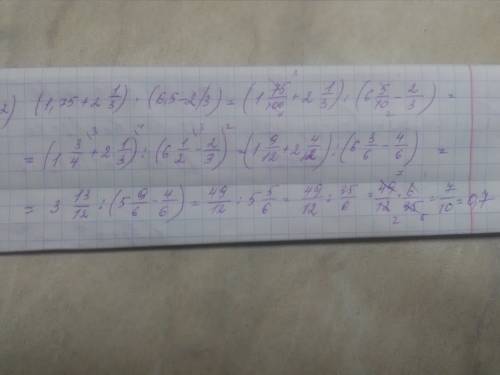 2) (1,75+2 1/3) : (6,5-2/3) = (1 75/100 + 2 1/3) : (6 5/10 - 2/3) =
= (1 3/4 + 2 1/3) : (6 1/2 - 2/3) = (1 9/12 + 2 4/12) : (6 3/6 - 4/6) =
= 3 13/12 : (5 9/6 - 4/6) = 49/12 : 5 5/6 = 49/12 : 35/6 = 49/12 · 6/35 = 7/10 = 0,7